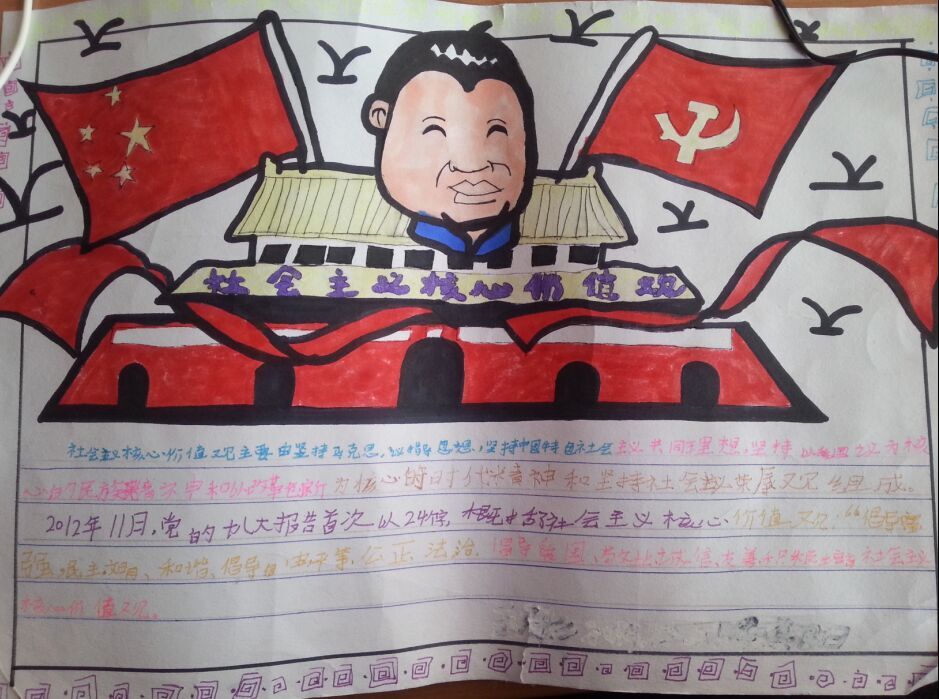 社会主义核心价值观
社会主义核心价值观主要由坚持马克思主义指导思想,坚持中国特色社会主义共同理想,坚持以爱国主义为核
心的民族精神和以改革创新为核心的时代精神和坚持社会主义荣辱观组成。
2012年11月,党的十八大报告首次以24个字,概括了社会主义核心价值观:“倡导富
强、民主、文明、和谐,倡导自由、平等、公正、法治,倡导爱国、敬业、诚信、友善
社会主义
核心价值观。